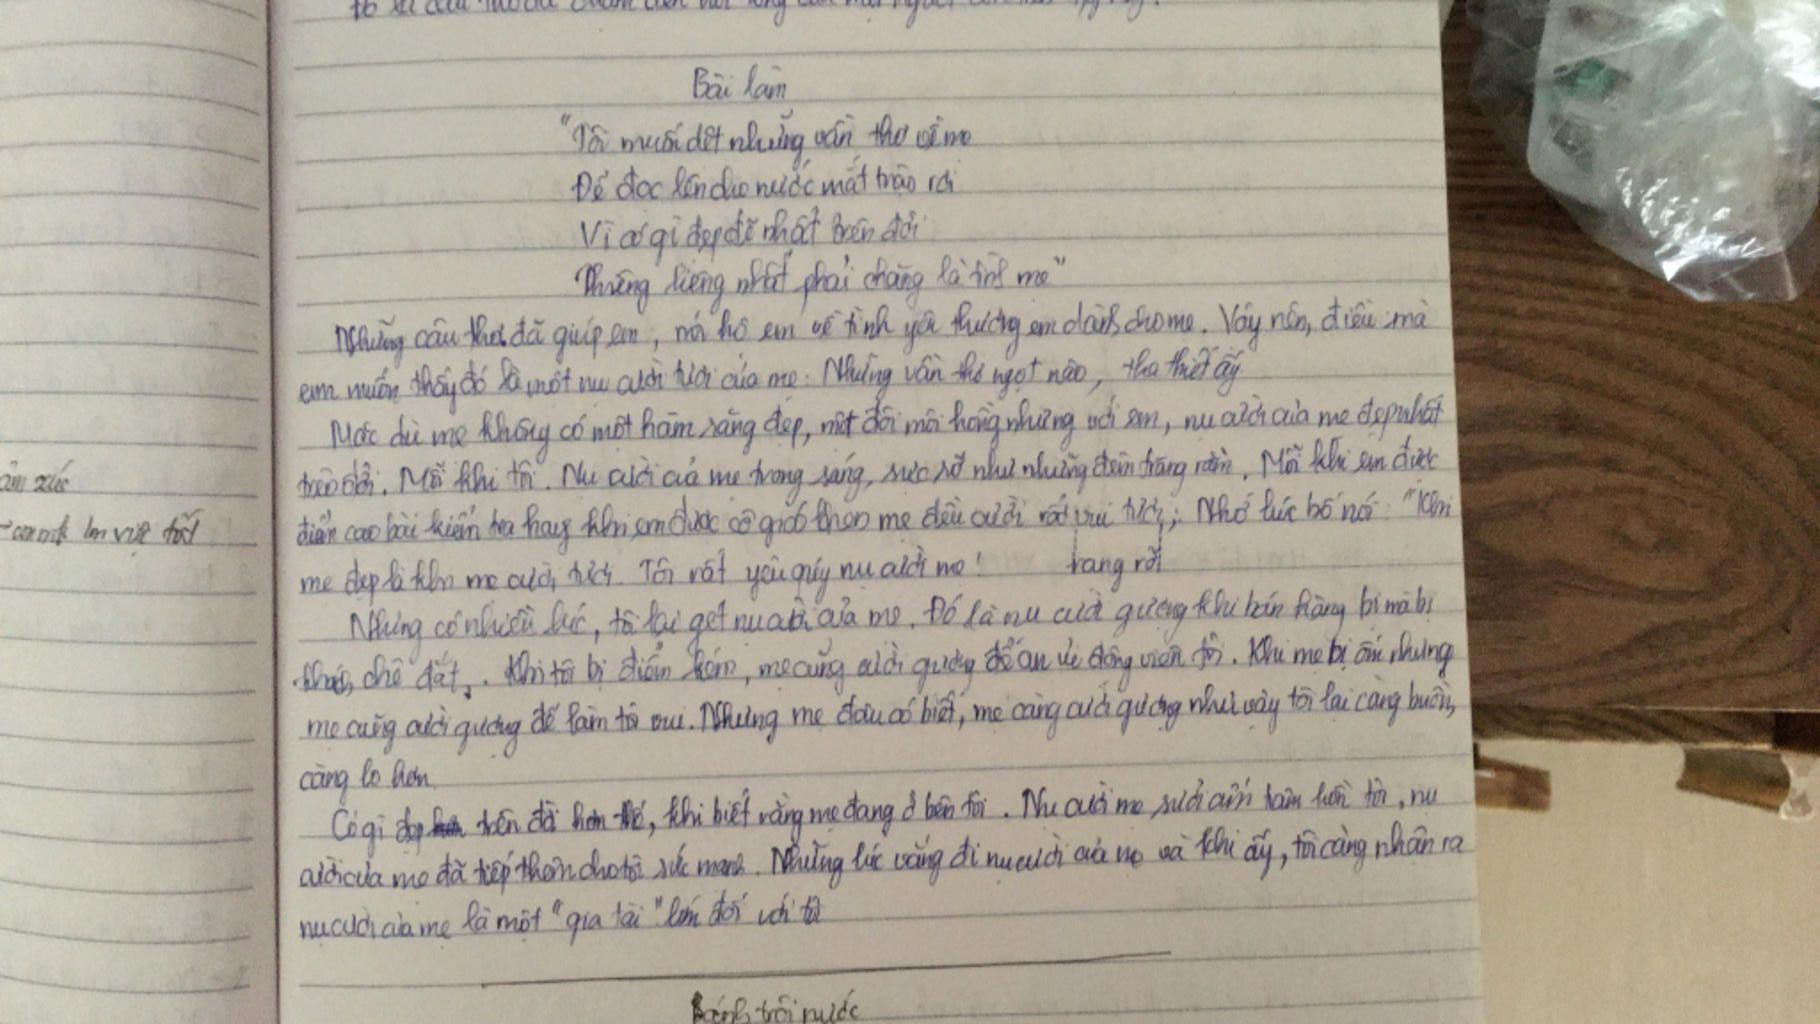 Bài làm
"Tôi muốn dệt những vần thơ về mẹ
Để đọc lên cho nước mắt trào rơi
Vì có gì đẹp đẽ nhất trên đời
Thiêng liêng nhất phải chăng là tình mẹ"
Những câu thơ đã giúp em, nói hộ em về tình yêu thương em dành cho mẹ. Vậy nên, điều mà
em muốn thấy đó là một nụ cười tươi của mẹ. Những vần thơ ngọt nào, tha thiết ấy
Mặc dù mẹ không có một hàm răng đẹp, một đôi môi hồng nhưng với em, nụ cười của mẹ đẹp nhất
trên đời. Mỗi khi tôi. Nụ cười của mẹ trong sáng, rực rỡ như những đêm trăng rằm. Mỗi khi em được
điểm cao bài kiểm tra hay khi em được cô giáo khen mẹ đều cười rất vui tươi; Nhớ lúc bố nói: "Khi
mẹ đẹp là khi mẹ cười tươi. Tôi rất yêu quý nụ cười mẹ! rạng rỡ
Nhưng có nhiều lúc, tôi lại gét nụ cười của mẹ. Đó là nụ cười gượng khi bán hàng bị mà bị
khách chê đắt,. Khi tôi bị điểm kém, mẹ cũng cười gượng để an ủi động viên tôi. Khi mẹ bị ốm nhưng
mẹ cũng cười gượng để làm tôi vui. Nhưng mẹ đâu có biết, mẹ càng cười gượng như vậy tôi lại càng buồn,
càng lo hơn.
Có gì đẹp trên đời hơn thế, khi biết rằng mẹ đang ở bên tôi. Nụ cười mẹ sưởi ấm tâm hồn tôi, nụ
cười của mẹ đã tiếp thêm cho tôi sức mạnh. Những lúc vắng đi nụ cười của mẹ và khi ấy, tôi càng nhận ra
nụ cười của mẹ là một "gia tài" lớn đối với tôi
Bánh trôi nước
cảm xúc
làm việc tốt